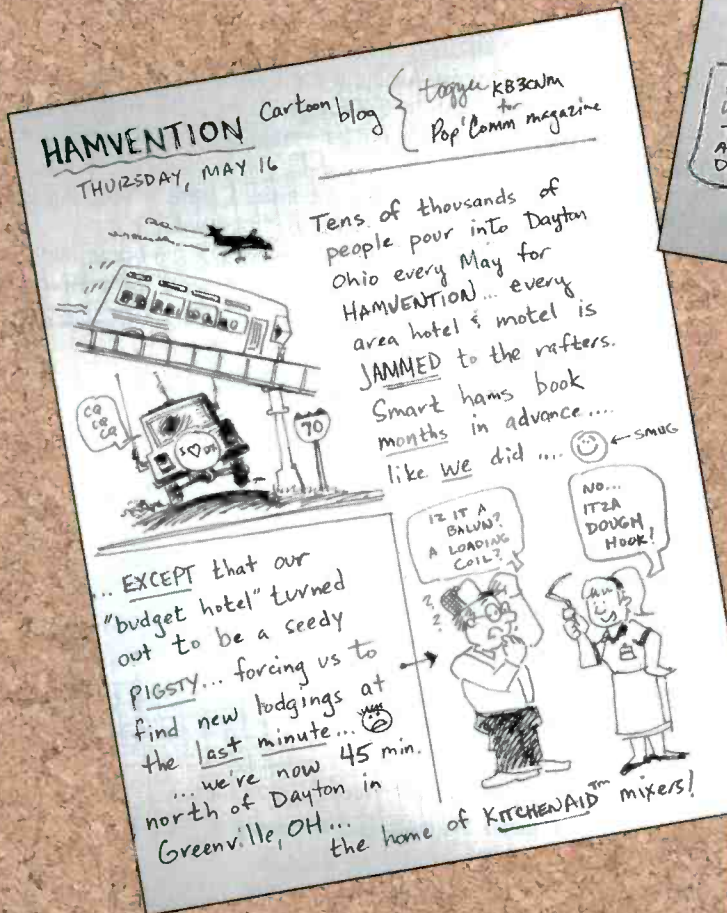 HAMVENTION Cartoon blog
KB3CNM
for
Pop'Comm magazine
THURSDAY, MAY 16
Tens of thousands of
people pour into Dayton
Ohio every May for
HAMVENTION... every
area hotel & motel is
JAMMED to the rafters.
Smart hams book
months in advance....
like we did .... ← SMUG
CQ
CQ
CQ
70
IZ IT A
BALUN?
A LOADING
COIL?
NO...
ITZA
DOUGH
HOOK!
?
?
?
... EXCEPT that our
"budget hotel" turned
out to be a seedy
PIGSTY... forcing us to
find new lodgings at
the last minute...
... we're now 45 min.
north of Dayton in
Greenville, OH...
the home of KITCHENAID™ mixers!